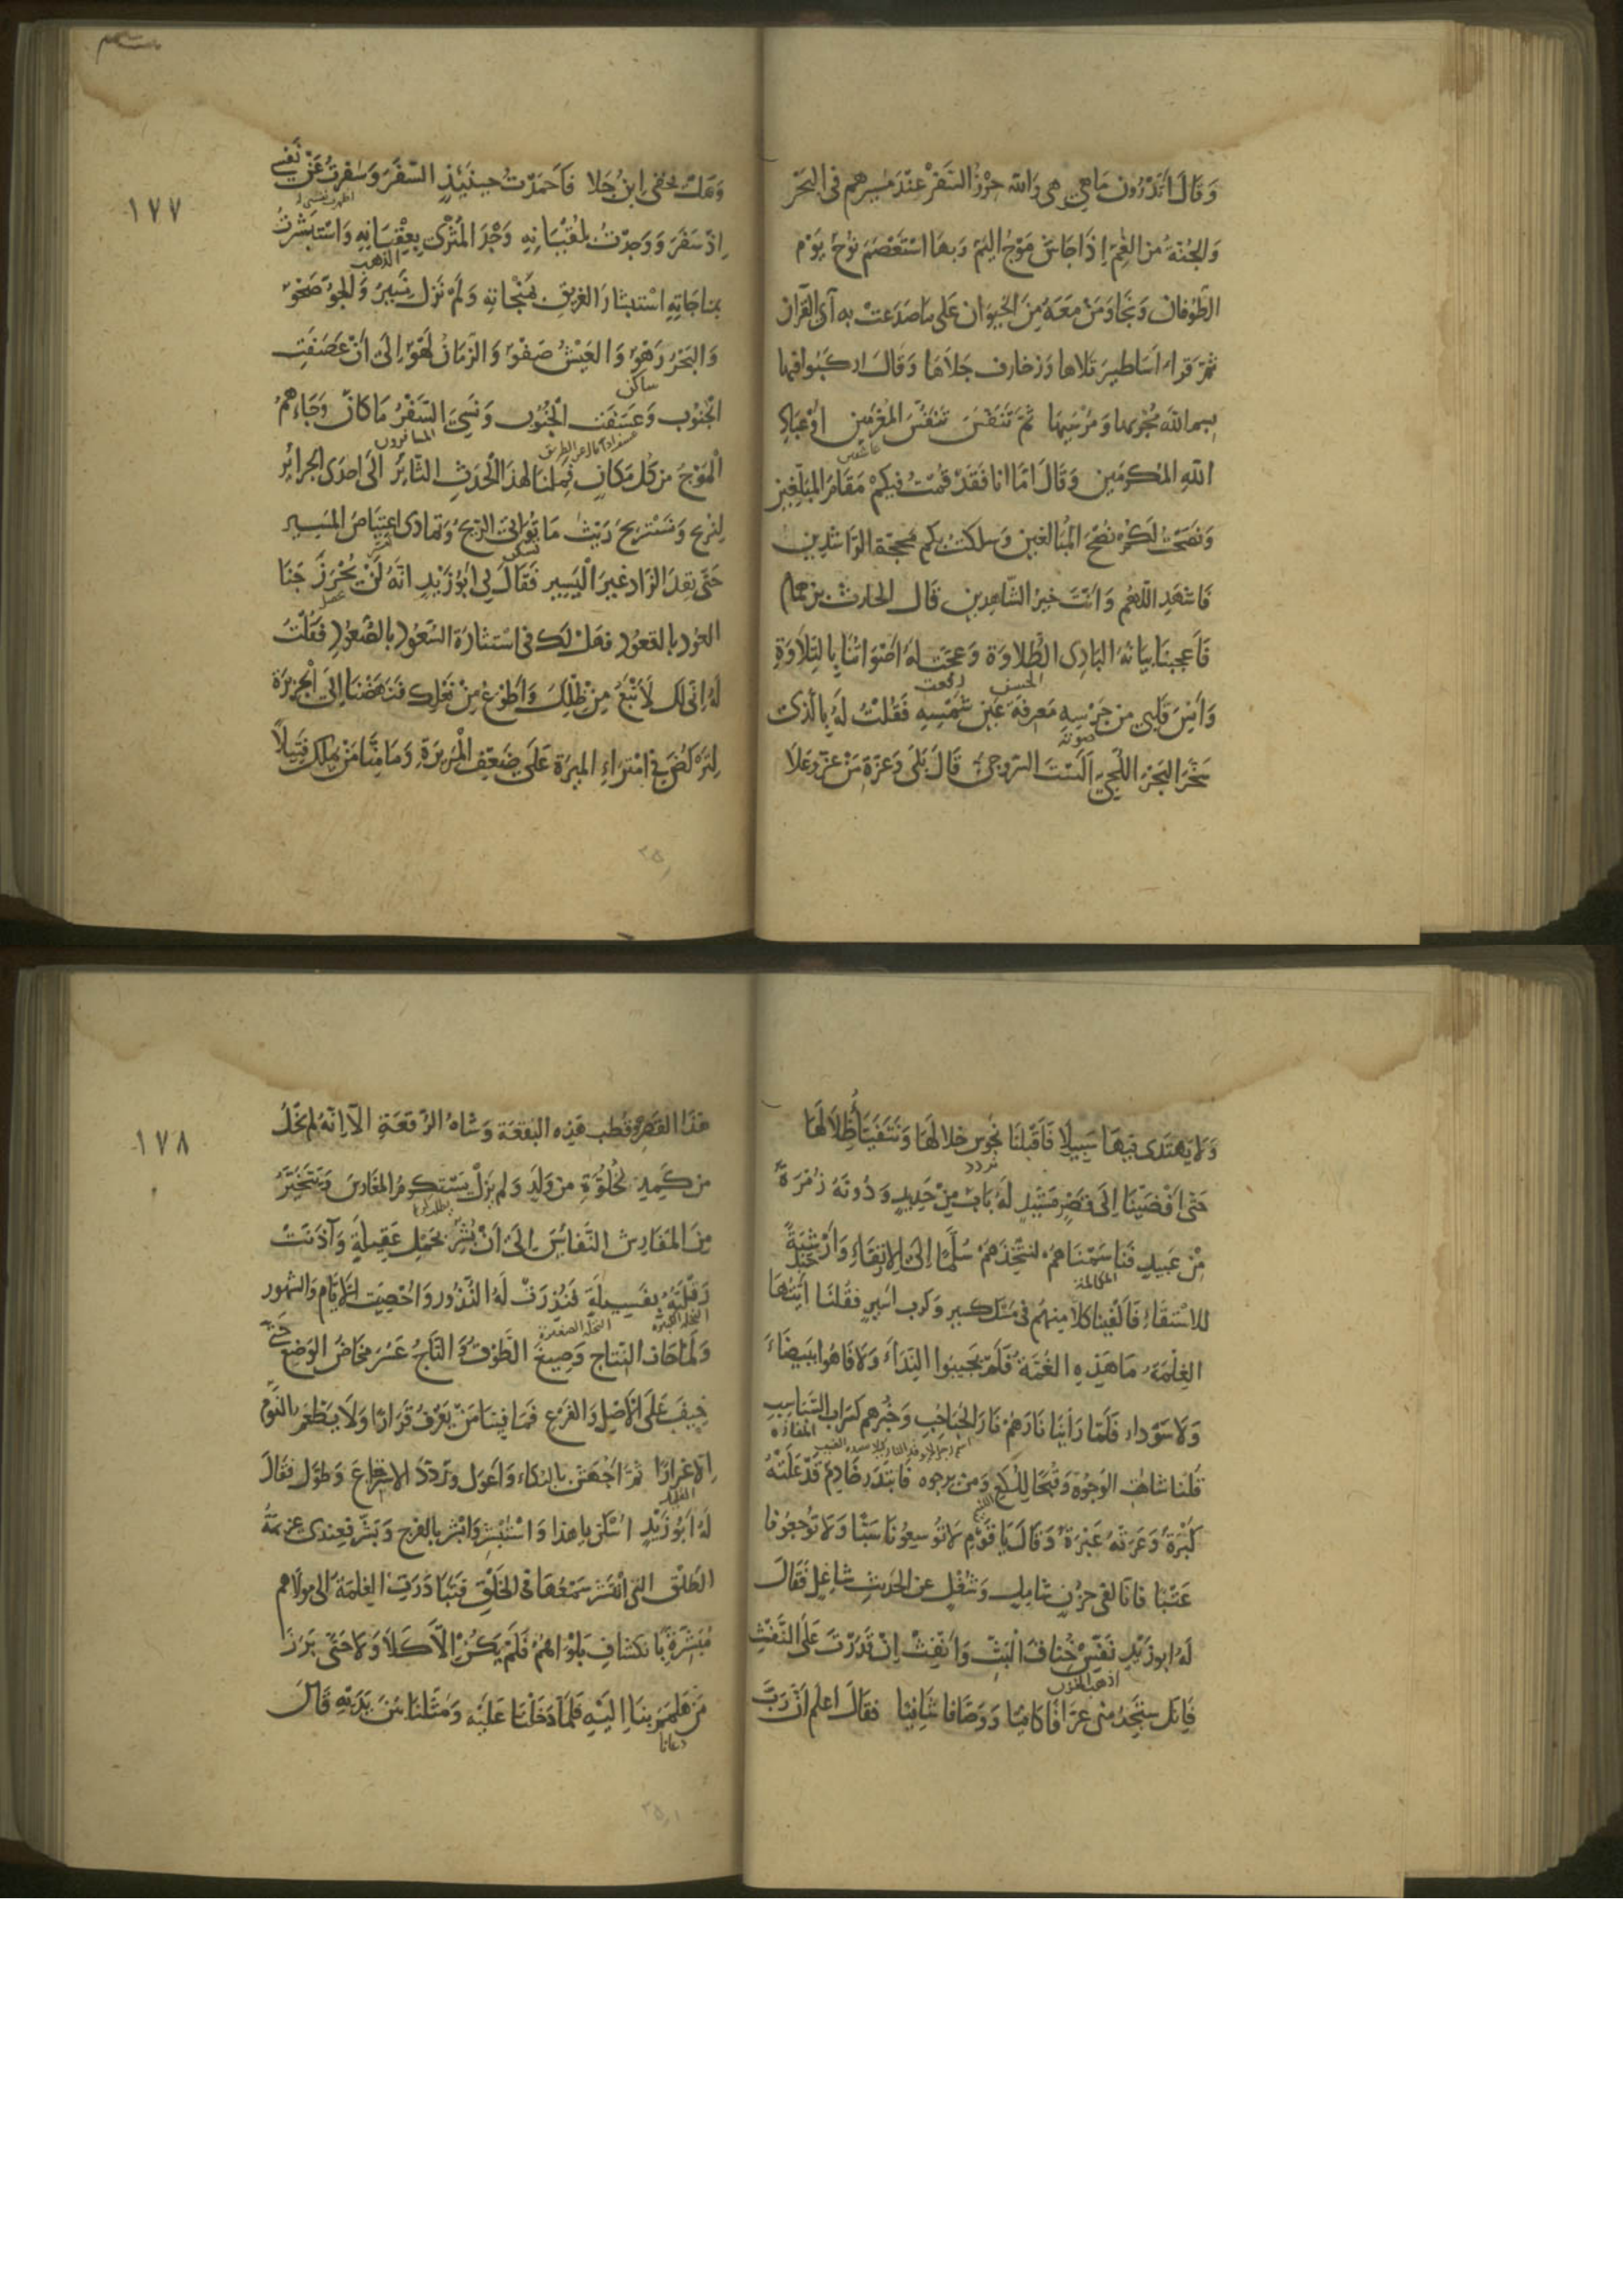 وَقَالَ اَتَدْرُونَ مَا هِيَ هِيَ وَاللّٰهِ حِرْزُ السَّفْرِ عِنْدَ مَسِيرِهِمْ فِى الْبَحْرِ
وَالْجُنَّةُ مِنَ الْغَمِّ اِذَا جَاشَ مَوْجُ الْيَمِّ وَبِهَا اسْتَعْصَمَ نُوحٌ يَوْمَ
الطُّوفَانِ وَنَجَا وَمَنْ مَعَهُ مِنَ الْحَيَوَانِ عَلَى مَا صَدَعَتْ بِهِ آىُ الْقُرْآنِ
ثُمَّ قَرَاءَ اَسَاطِيرَ تَلَاهَا وَزَخَارِفَ جَلَاهَا وَقَالَ ارْكَبُوا فِيهَا
بِسْمِ اللّٰهِ مُجْرٰىهَا وَمُرْسٰيهَا ثُمَّ تَنَفَّسَ تَنَفُّسَ الْمُغْرَمِينَ اَوْ عِبَادِ
عاشقين
اللّٰهِ الْمُكْرَمِينَ وَقَالَ اَمَّا اَنَا فَقَدْ قُمْتُ فِيكُمْ مَقَامَ الْمُبَلِّغِينَ
وَنَصَحْتُ لَكُمْ نُصْحَ الْمُبَالِغِينَ وَسَلَكْتُ بِكُمْ مَحَجَّةَ الرَّاشِدِينَ
فَاشْهَدِ اللّٰهُمَّ وَاَنْتَ خَيْرُ الشَّاهِدِينَ قَالَ الْحَارِثُ بْنُ هَمَّامٍ
فَاَعْجَبَنَا بَيَانُهُ الْبَادِى الطُّلَاوَةِ وَعَجَّتْ لَهُ اَصْوَاتُنَا بِالتِّلَاوَةِ
الحسن رفعت
وَاَنِسَ قَلْبِى مِنْ جَرْسِهِ مَعْرِفَةَ عَيْنِ شَمْسِهِ فَقُلْتُ لَهُ بِالَّذِى
صوته
سَخَّرَ الْبَحْرَ اللُّجِّيَّ اَلَسْتَ السَّرُوجِيَّ قَالَ بَلَى وَعِزَّةِ مَنْ عَزَّ وَعَلَا
وَهَلْ يَخْفَى ابْنُ جَلَا فَاَحْمَدْتُ حِينَئِذٍ السَّفَرَ وَسَفَرْتُ عَنْ نَفْسِى
١٧٧
اِذْ سَفَرَ وَوَجَدْتُ بِلُقْيَانِهِ وَجْدَ الْمُثْرِى بِعِقْيَانِهِ وَاسْتَبْشَرْتُ
الذهب
بِمُنَاجَاتِهِ اسْتِبْشَارَ الْغَرِيقِ بِمَنْجَاتِهِ وَلَمْ نَزَلْ نَسِيرُ وَالْجَوُّ صَحْوٌ
وَالْبَحْرُ رَهْوٌ وَالْعَيْشُ صَفْوٌ وَالزَّمَانُ لَهْوٌ اِلَى اَنْ عَصَفَتِ
ساكن
الْجَنُوبُ وَعَسَفَتِ الْجُنُوبُ وَنَسِيَ السَّفْرُ مَا كَانَ وَجَاءَهُمُ
المسافرون
الْمَوْجُ مِنْ كُلِّ مَكَانٍ فَمِلْنَا لِهٰذَا الْحَدَثِ الثَّائِرِ اِلَى اِحْدَى الْجَزَائِرِ
لِنُرِيحَ وَنَسْتَرِيحَ رَيْثَ مَا تُوَاتِى الرِّيحُ وَتَمَادَى اعْتِيَاصُ الْمَسِيرِ
حَتَّى نَفِدَ الزَّادُ غَيْرَ الْيَسِيرِ فَقَالَ لِى اَبُو زَيْدٍ اِنَّهُ لَنْ يُحْرَزَ جَنَا
الْعُودِ بِالْقُعُودِ فَهَلْ لَكَ فِى اسْتِثَارَةِ السُّعُودِ بِالصُّعُودِ فَقُلْتُ
لَهُ اِنِّى لَكَ لَاَتْبَعُ مِنْ ظِلِّكَ وَاَطْوَعُ مِنْ نَعْلِكَ فَنَهَضْنَا اِلَى الْجَزِيرَةِ
لِنَرْكُضَ فِى امْتِرَاءِ الْمِيرَةِ عَلَى ضَعْفِ الْمَرِيرَةِ وَمَا مِنَّا مَنْ يَمْلِكُ فَتِيلًا
وَلَا يَهْتَدِى فِيهَا سَبِيلًا فَاَقْبَلْنَا نَجُوسُ خِلَالَهَا وَنَتَفَيَّأُ ظِلَالَهَا
تردد
حَتَّى اَفْضَيْنَا اِلَى قَصْرٍ مَشِيدٍ لَهُ بَابٌ مِنْ حَدِيدٍ وَدُونَهُ زُمْرَةٌ
مِنْ عَبِيدٍ فَنَاسَمْنَاهُمْ لِنَتَّخِذَهُمْ سُلَّمًا اِلَى الْاِرْتِقَاءِ وَاَرْشِيَةً
المكالمة حبل
لِلْاِسْتِقَاءِ فَاَلْفَيْنَا كُلًّا مِنْهُمْ فِى مَسْكِ كَسِيرٍ وَكَرْبِ اَسِيرٍ فَقُلْنَا اَيَّتُهَا
الْغِلْمَةُ مَا هٰذِهِ الْغُمَّةُ فَلَمْ يُجِيبُوا النِّدَاءَ وَلَا فَاهُوا بِبَيْضَاءَ
وَلَا سَوْدَاءَ فَلَمَّا رَاَيْنَا نَارَهُمْ نَارَ الْحُبَاحِبِ وَخُبْرَهُمْ كَسَرَابِ السَّبَاسِبِ
المفازه
قُلْنَا شَاهَتِ الْوُجُوهُ وَقُبْحًا لِلُّكَعِ وَمَنْ يَرْجُوهُ فَابْتَدَرَ خَادِمٌ قَدْ عَلَتْهُ
كَبْرَةٌ وَعَرَتْهُ عَبْرَةٌ وَقَالَ يَا قَوْمِ لَا تُوسِعُونَا سَبًّا وَلَا تُوجِعُونَا
عَتْبًا فَاِنَّا لَفِى حُزْنٍ شَامِلٍ وَشُغْلٍ عَنِ الْحَدِيثِ شَاغِلٍ فَقَالَ
لَهُ اَبُو زَيْدٍ نَفِّسْ خِنَاقَ الْبَثِّ وَانْفِثْ اِنْ قَدَرْتَ عَلَى النَّفْثِ
فَاِنَّكَ سَتَجِدُ مِنِّى عَرَّافًا كَافِيًا وَوَصَّافًا شَافِيًا فَقَالَ اعْلَمْ اَنَّ رَبَّ
هٰذَا الْقَصْرِ هُوَ قُطْبُ هٰذِهِ الْبُقْعَةِ وَشَاهُ الرُّقْعَةِ اِلَّا اَنَّهُ لَمْ يَخْلُ
١٧٨
مِنْ كَمَدٍ لِخُلُوِّهِ مِنْ وَلَدٍ وَلَمْ يَزَلْ يَسْتَكْرِمُ الْمَغَارِسَ وَيَتَخَيَّرُ
مِنَ الْمَفَارِشِ النَّفَائِسَ اِلَى اَنْ بُشِّرَ بِحَمْلِ عَقِيلَةٍ وَآذَنَتْ
رَقْلَتُهُ بِفَسِيلَةٍ فَنُذِرَتْ لَهُ النُّذُورُ وَاُحْصِيَتِ الْاَيَّامُ وَالشُّهُورُ
النخلة الكبيرة النخلة الصغيرة
وَلَمَّا حَانَ النِّتَاجُ وَصِيغَ الطَّوْقُ وَالتَّاجُ عَسُرَ مَخَاضُ الْوَضْعِ حَتَّى
خِيفَ عَلَى الْاَصْلِ وَالْفَرْعِ فَمَا فِينَا مَنْ يَعْرِفُ قَرَارًا وَلَا يَطْعَمُ النَّوْمَ
اِلَّا غِرَارًا ثُمَّ اَجْهَشَ بِالْبُكَاءِ وَاَعْوَلَ وَرَدَّدَ الْاِسْتِرْجَاعَ وَطَوَّلَ فَقَالَ
لَهُ اَبُو زَيْدٍ اسْكُنْ يَا هٰذَا وَاسْتَبْشِرْ وَابْشِرْ بِالْفَرَجِ وَبَشِّرْ فَعِنْدِى عَزِيمَةُ
الطَّلْقِ الَّتِى انْتَشَرَ سَمْعُهَا فِى الْخَلْقِ فَتَبَادَرَتِ الْغِلْمَةُ اِلَى مَوْلَاهُمْ
مُتَبَشِّرِينَ بِانْكِشَافِ بَلْوَاهُمْ فَلَمْ يَكُنْ اِلَّا كَلَا وَلَا حَتَّى بَرَزَ
مَنْ هَلْمَمَ بِنَا اِلَيْهِ فَلَمَّا دَخَلْنَا عَلَيْهِ وَمَثَلْنَا بَيْنَ يَدَيْهِ قَالَ
دعانا